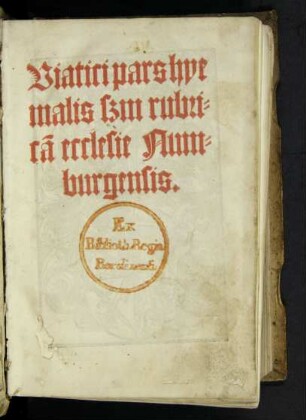 Viatici pars hye
malis sʒm rubri⸗
cā ecclesie Num⸗
burgensis.
Ex
Biblioth. Regia
Berolinensi.